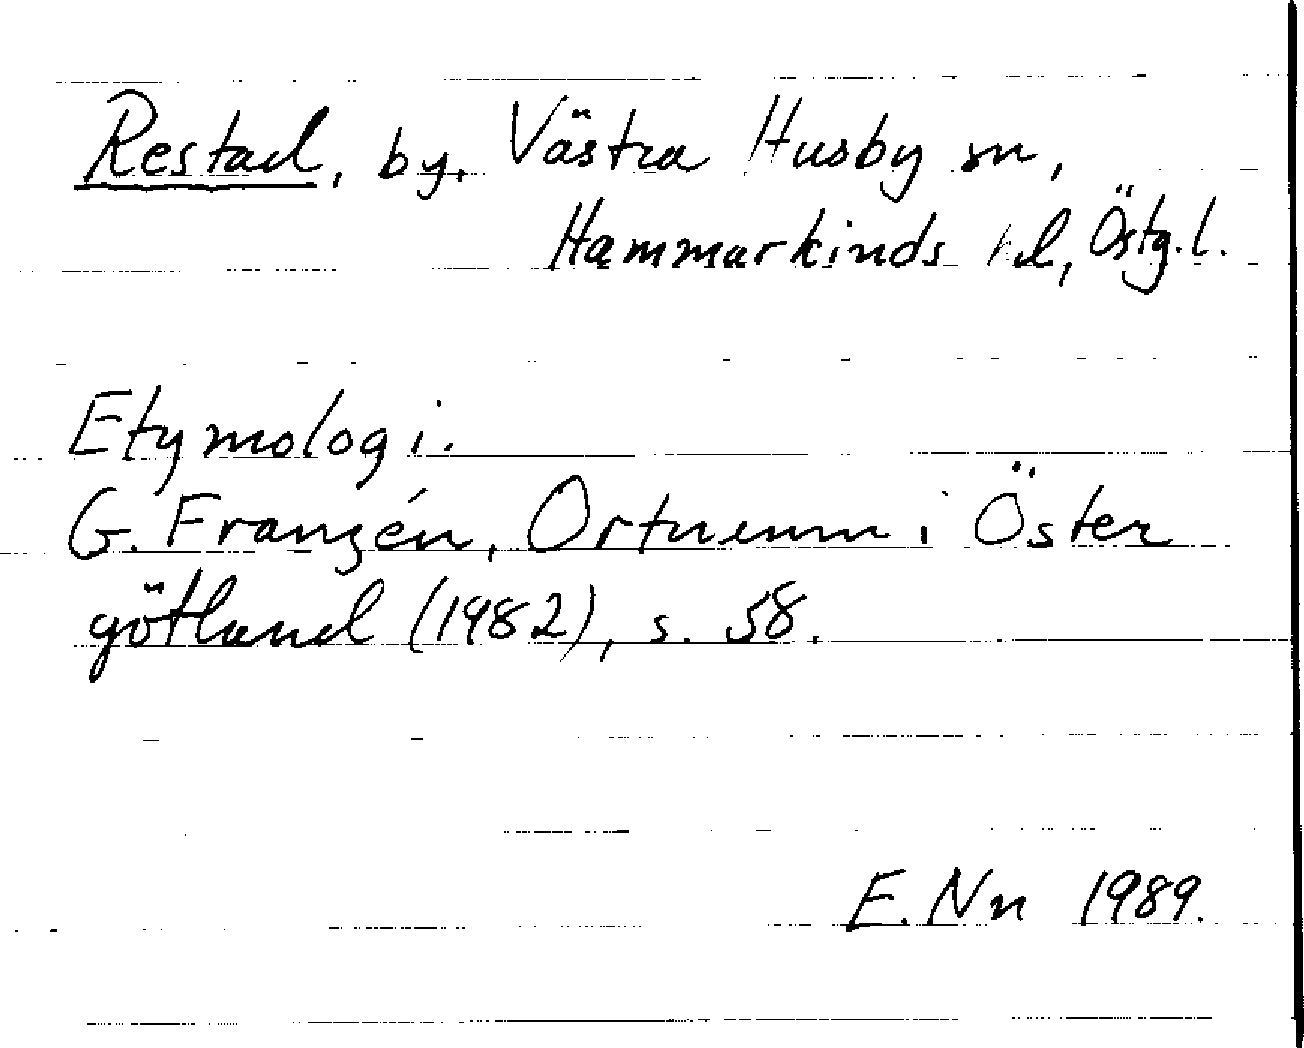 Restad, by. Västra Husby sn,
Hammarkinds hd, Östg.l.
Etymologi.
G. Franzén, Ortnamn i Öster
götland (1982), s. 58.
E. Nn 1989.